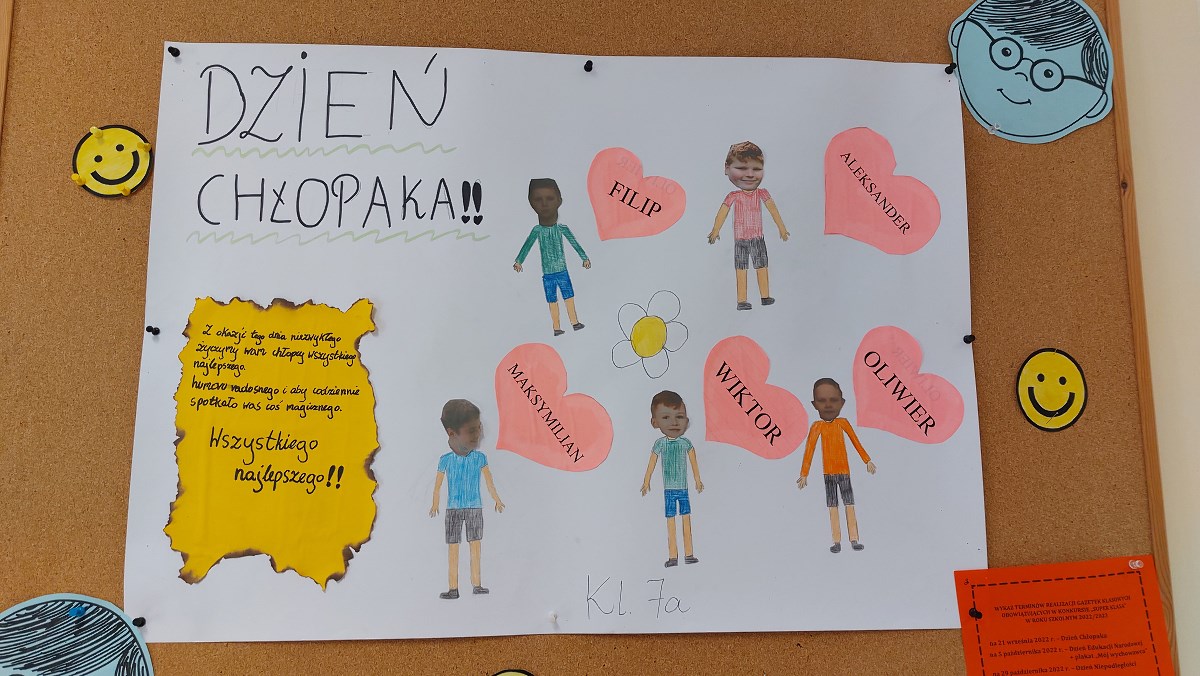 DZIEŃ
CHŁOPAKA!!
FILIP
ALEKSANDER
Z okazji tego dnia niezwykłego
życzymy wam chłopcy wszystkiego
najlepszego.
humoru radosnego i aby codziennie
spotkało was coś magicznego.
Wszystkiego
najlepszego!!
MAKSYMILIAN
WIKTOR
OLIWIER
Kl. 7a
WYKAZ TERMINÓW REALIZACJI GAZETEK KLASOWYCH
OBOWIĄZUJĄCYCH W KONKURSIE „SUPER KLASA"
W ROKU SZKOLNYM 2022/2023
na 21 września 2022 r. – Dzień Chłopaka
na 5 października 2022 r. – Dzień Edukacji Narodowej
+ plakat „Mój wychowawca"
na 29 października 2022 r. – Dzień Niepodległości